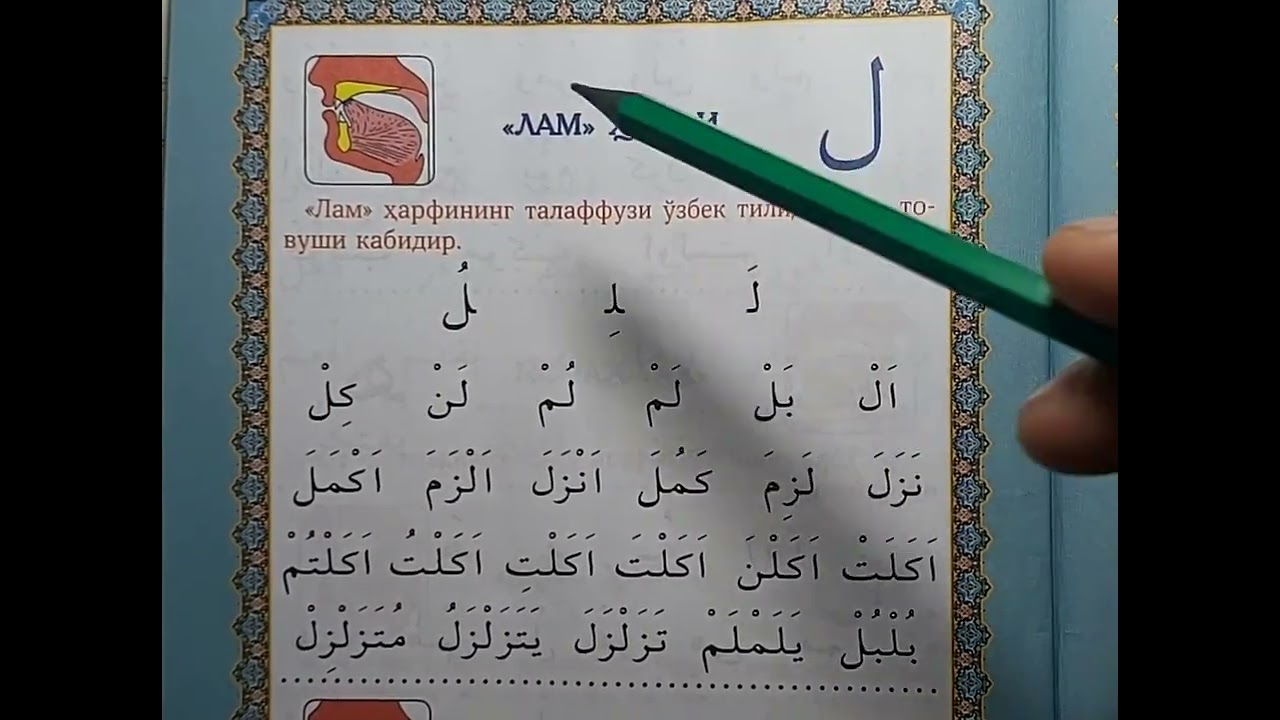 «ЛАМ»
ل
«Лам» ҳарфининг талаффузи ўзбек то-
вуши кабидир.
لَـ ـلِـ ـلُ
اَلْ بَلْ لَمْ لُمْ لَنْ كِلْ
نَزَلَ لَزِمَ كَمُلَ اَنْزَلَ اَلْزَمَ اَكْمَلَ
اَكَلَتْ اَكَلْنَ اَكَلْتَ اَكَلْتِ اَكَلْتُ اَكَلْتُمْ
بُلْبُلْ يَلَمْلَمْ تَزَلْزَلَ يَتَزَلْزَلُ مُتَزَلْزِلْ